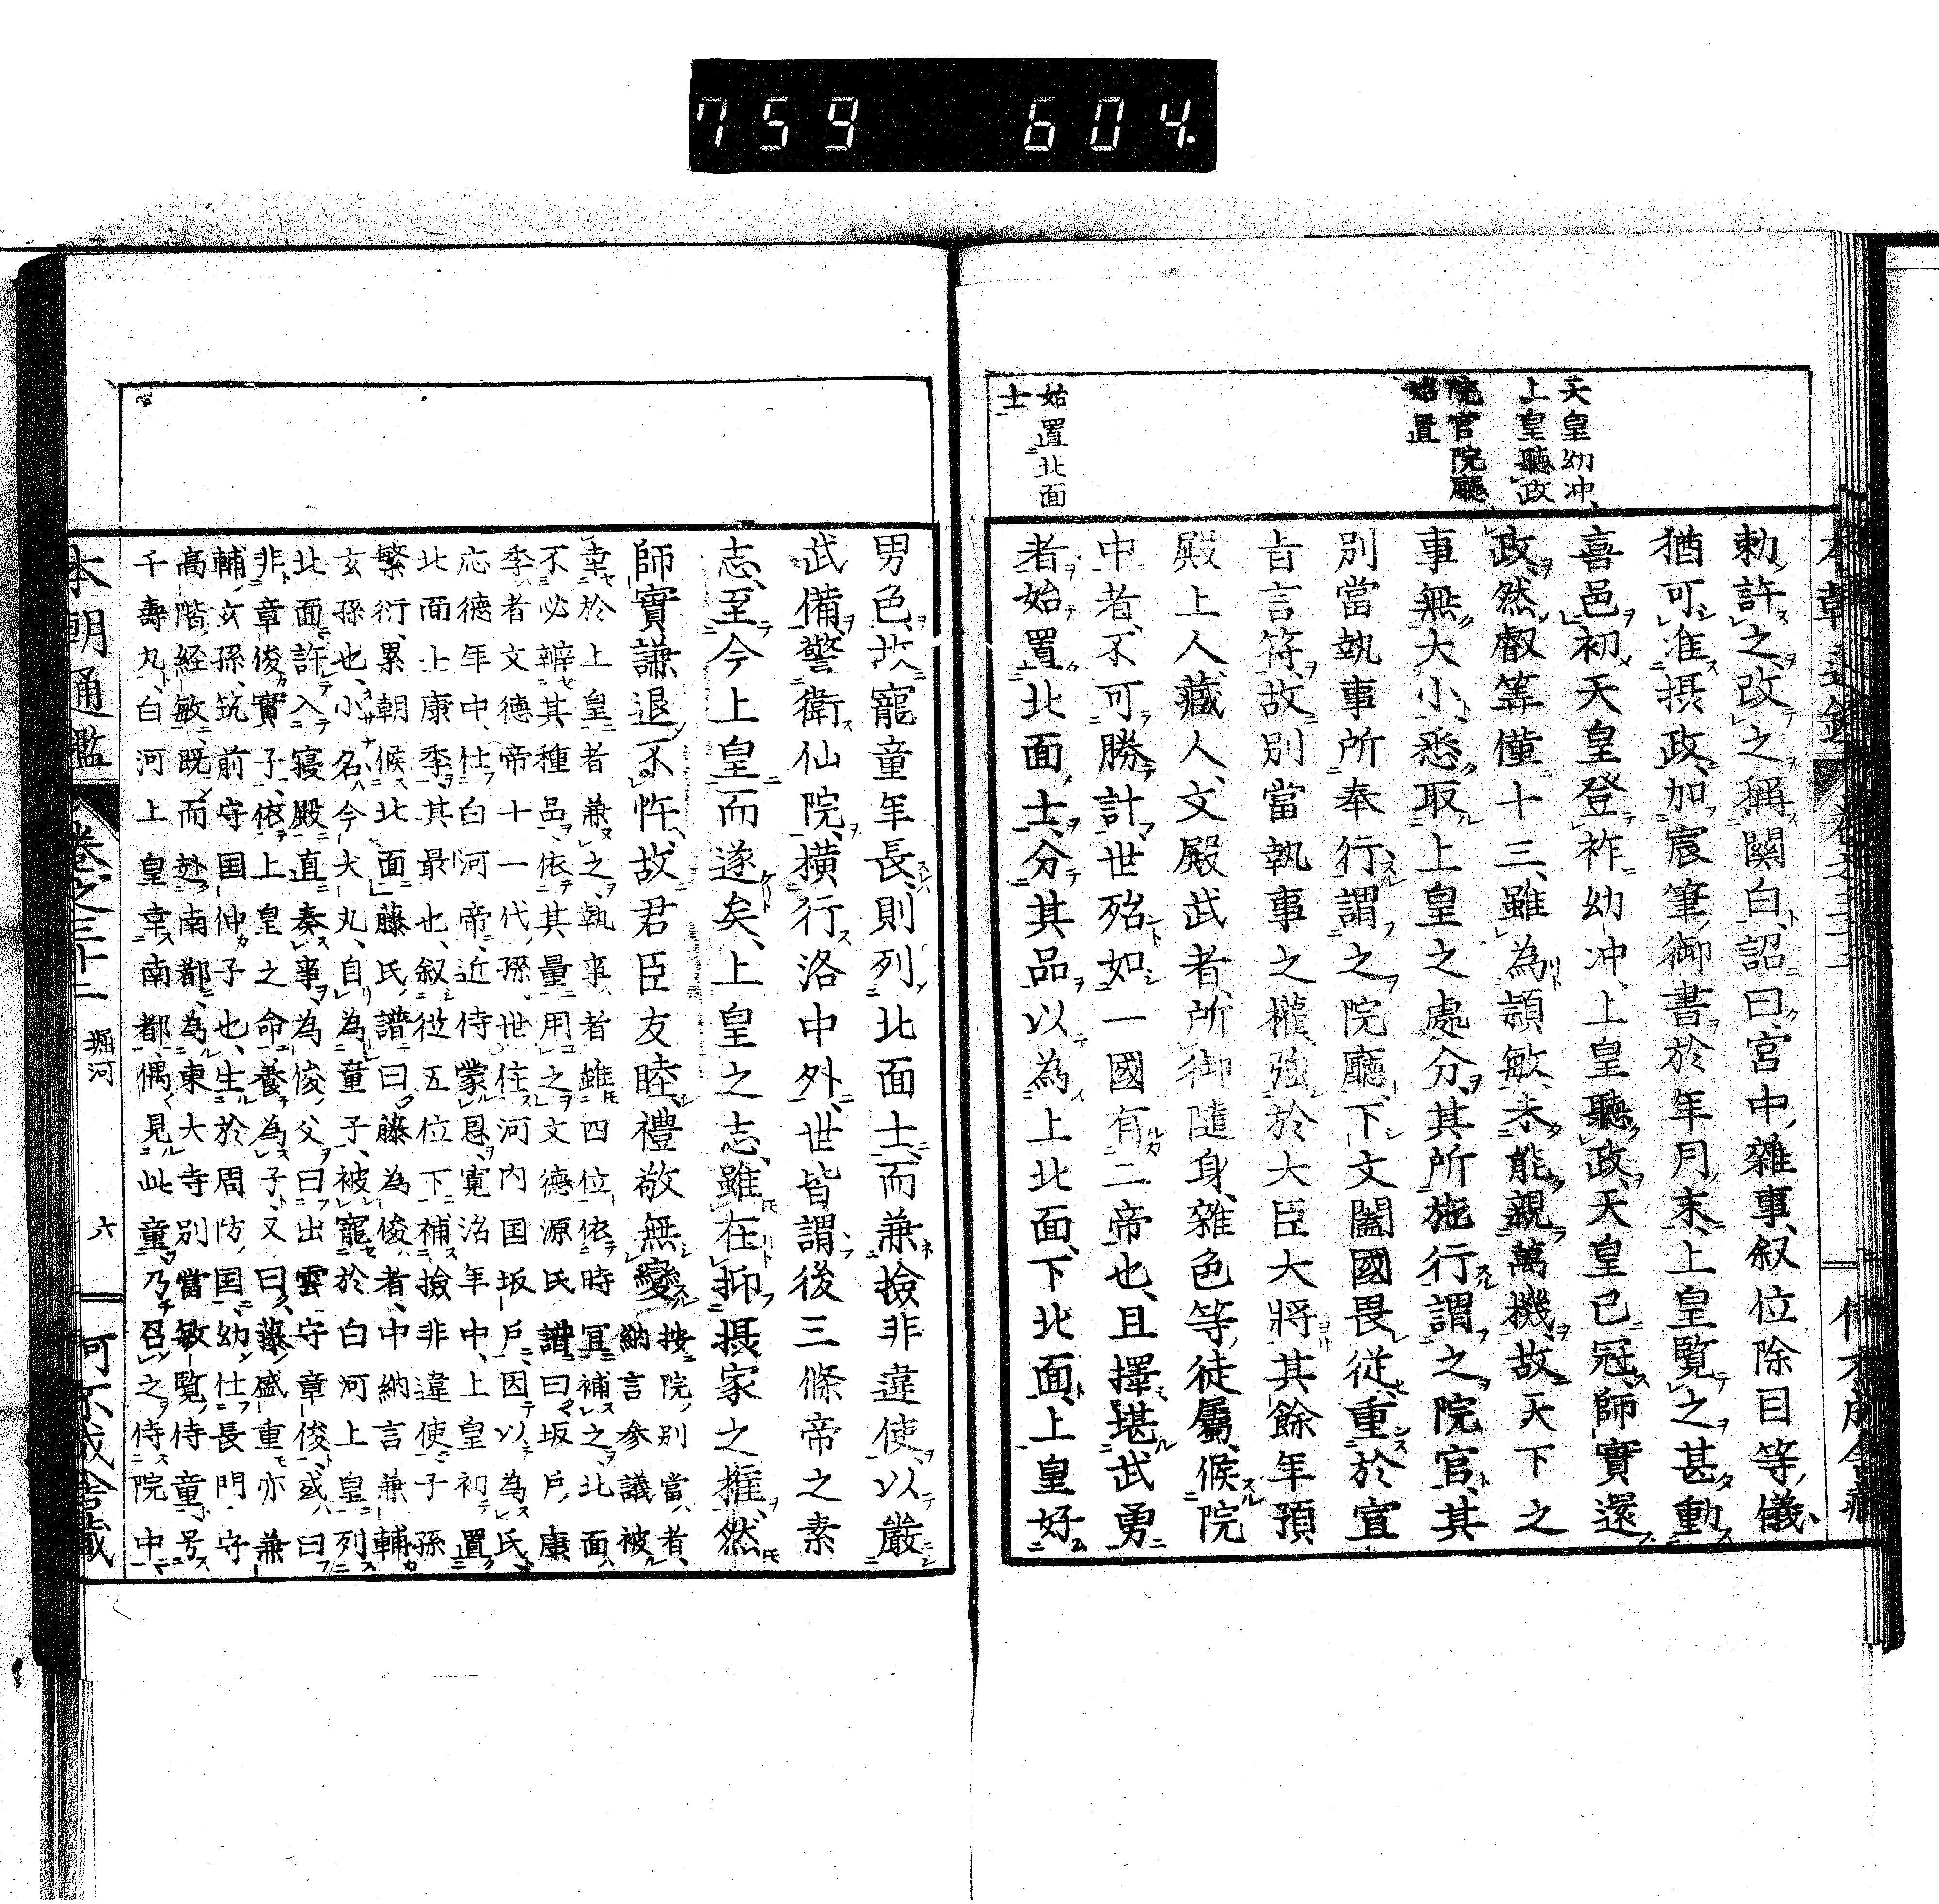 759 604.
天皇幼冲、
上皇聽政
院官院廳
始置
始置北面
士
勅許之改之稱關白、詔曰、宮中雜事、叙位除目等儀、
猶可准摂政、加宸筆御書於年月末、上皇覽之甚動
喜邑、初天皇登祚幼冲、上皇聽政、天皇已冠、師實還
政、然叡筭僅十三、雖為頴敏、未能親萬機、故天下之
事無大小、悉取上皇之處分、其所施行謂之院官、其
別當執事所奉行、謂之院廳、下文闔國畏從、重於宣
旨言符、故別當執事之權強於大臣大將、其餘年預
殿上人藏人、文殿武者、所御隨身、雜色等、徒屬候院
中者、不可勝計、世殆如一國有二帝也、且擇堪武勇
者、始置北面士、分其品以為上北面、下北面、上皇好
男色、故寵童年長、則列北面士、而兼撿非違使、以嚴
武備、警衛仙院、横行洛中外、世皆謂後三條帝之素
志、至今上皇而遂矣、上皇之志、雖在抑摂家之權、然
師實謙退不忤、故君臣友睦禮敬無變
按院別當者、
納言参議被
幸於上皇者兼之、執事者雖四位依時宜補之、北面
不必辨其種邑、依其量用之、文德源氏譜曰、坂戶康
季者文德帝十一代孫、世住河内国坂戶、因以為氏、
応德年中、仕白河帝、近侍蒙恩、寛治年中、上皇初置
北面上、康季其最也、叙従五位下、補撿非違使、子孫
繁衍、累朝候北面、藤氏譜曰、藤為俊者、中納言兼輔
玄孫也、小名今犬丸、自為童子、被寵於白河上皇、列
北面、許入寝殿、直奏事、為俊父曰出雲守章俊、或曰
非章俊實子、依上皇之命、養為子、又曰、藤盛重亦兼
輔玄孫、筑前守国仲子也、生於周防国、幼仕長門守
高階経敏、既而赴南都、為東大寺別當敏覽侍童、号
千壽丸、白河上皇幸南都、偶見此童、乃召之侍院中
本朝通鑑 卷之三十二 堀河 六